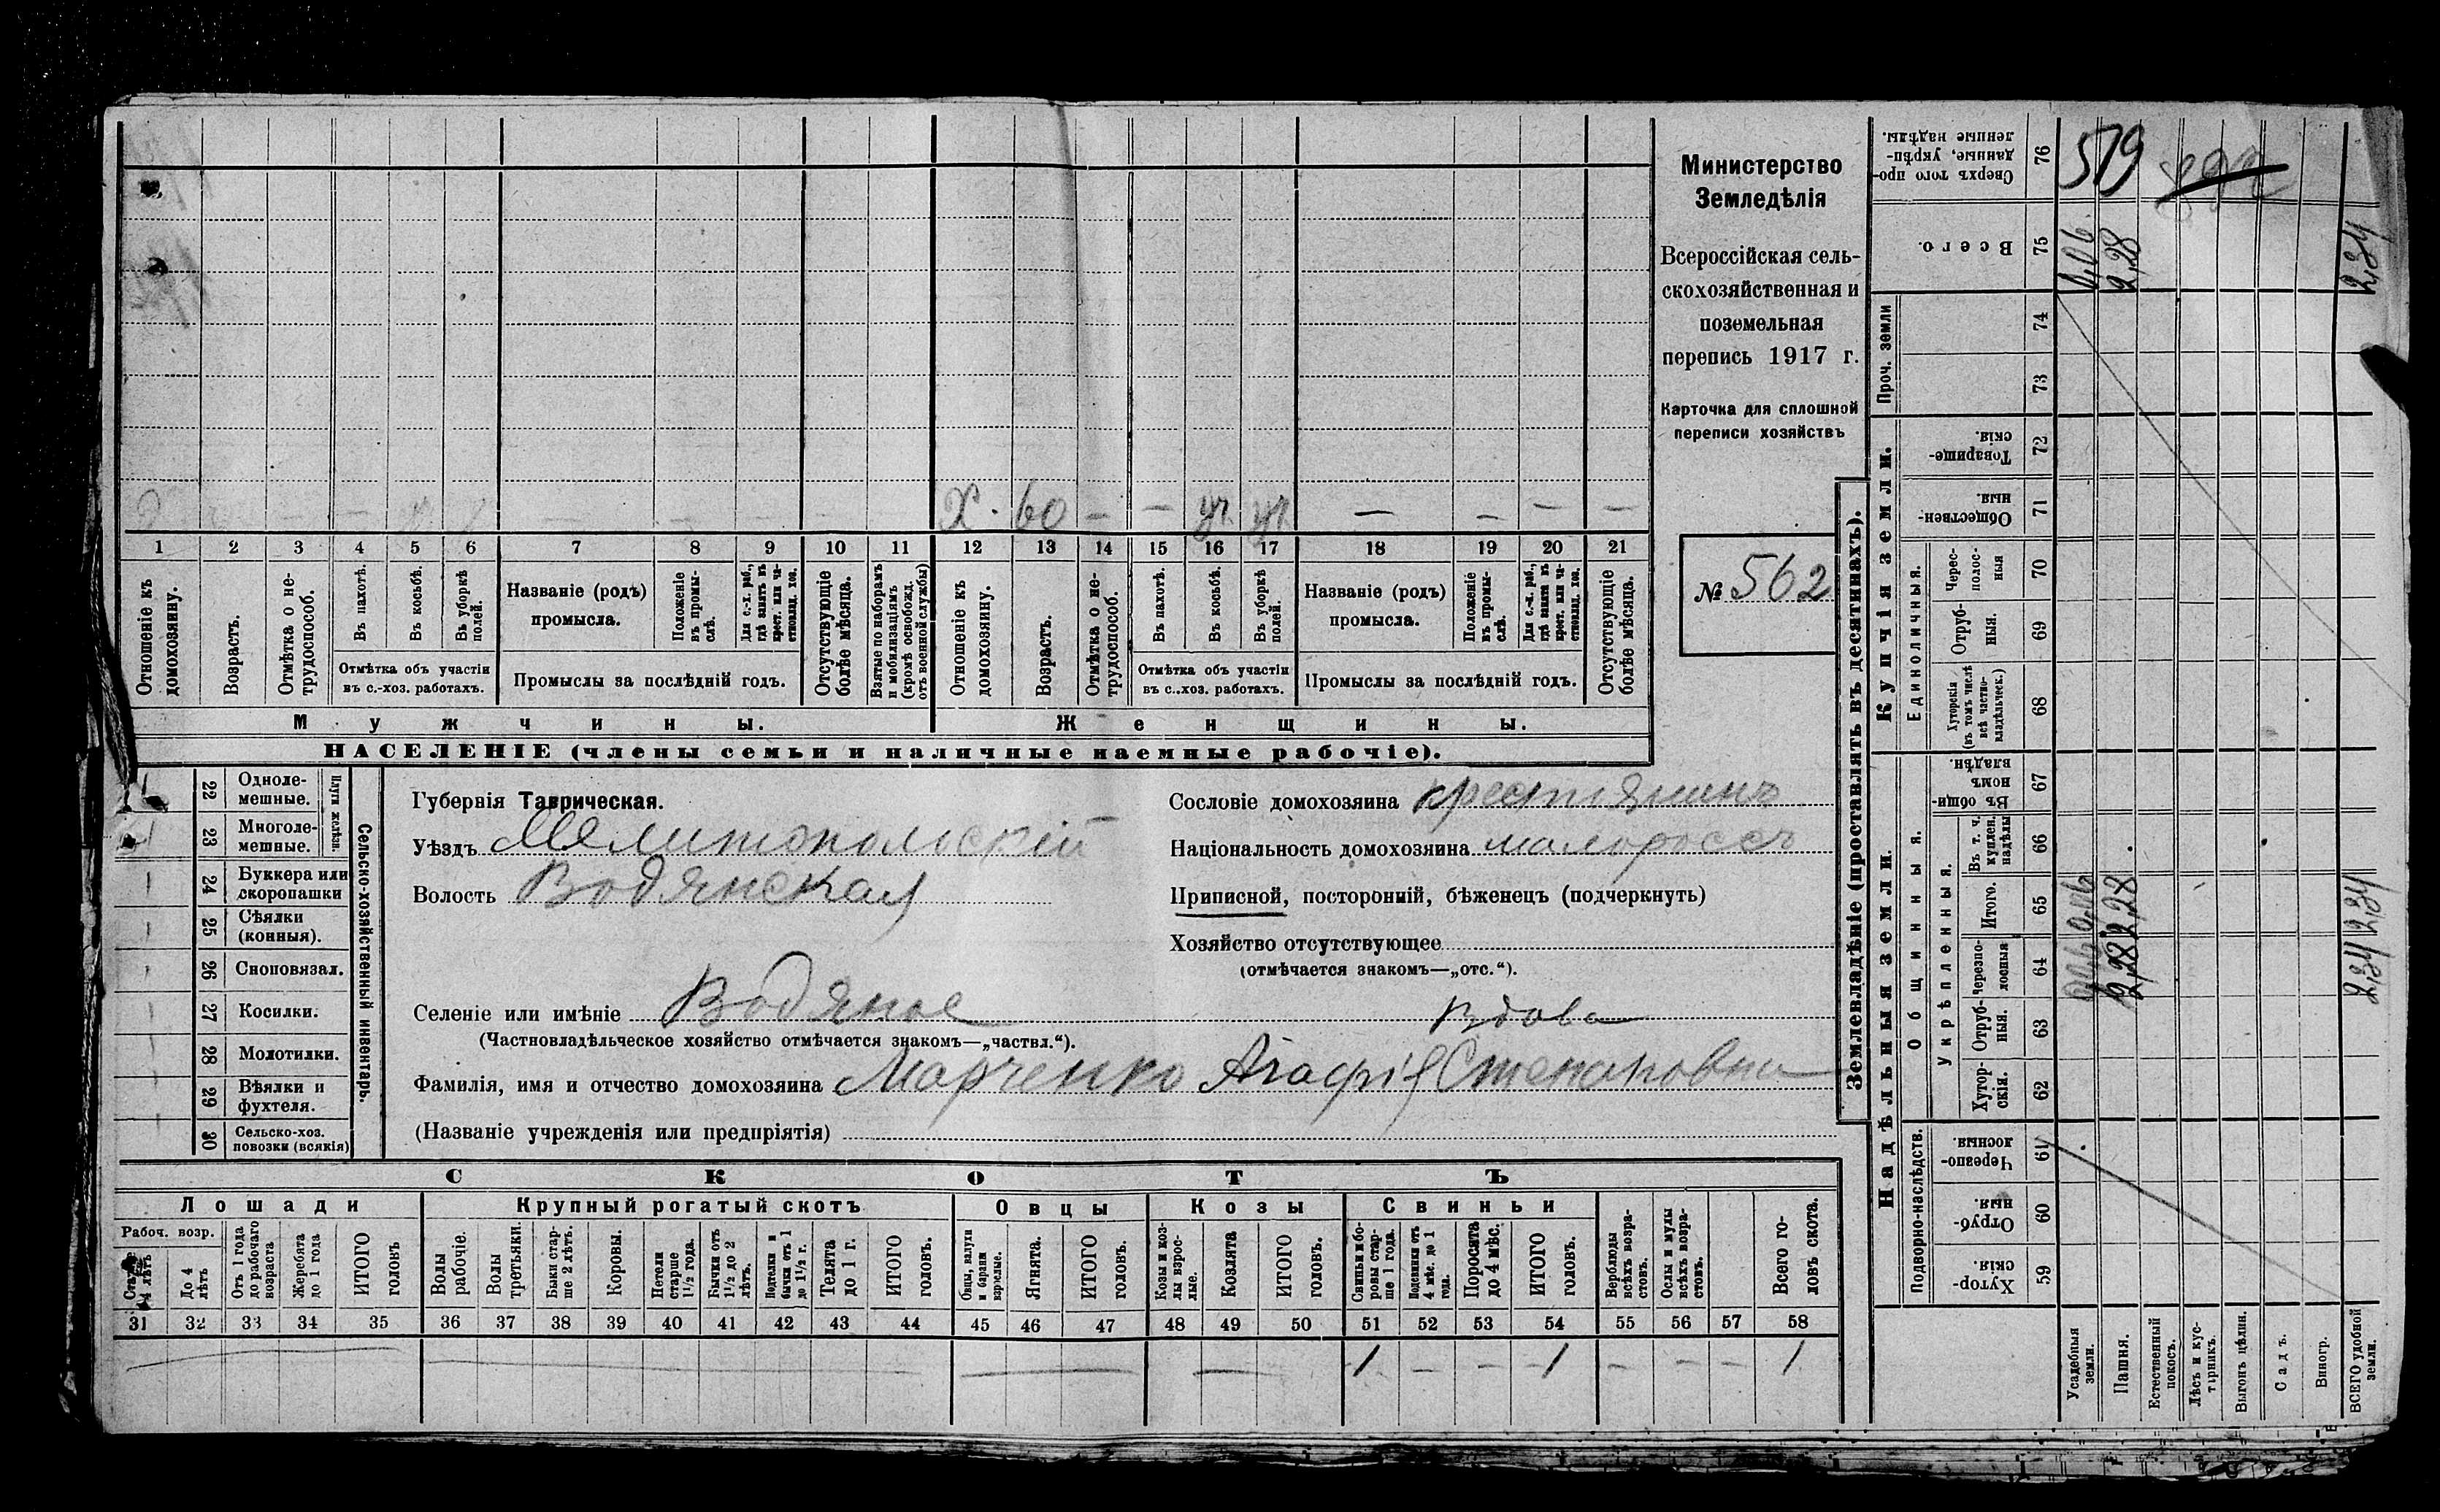 Министерство
Земледѣлія
Всероссійская сель-
скохозяйственная и
поземельная
перепись 1917 г.
Карточка для сплошной
переписи хозяйствъ
№ 562
Х. 60 — — уч. уч. — — — —
1 2 3 4 5 6 7 8 9 10 11 12 13 14 15 16 17 18 19 20 21
Отношеніе къ домохозяину.
Возрастъ.
Отмѣтка о не-трудоспособ.
Въ пахотѣ.
Въ косьбѣ.
Въ уборкѣ полей.
Отмѣтка объ участіи
въ с.-хоз. работахъ.
Названіе (родъ)
промысла.
Положеніе въ промы-слѣ.
Для с.-х. раб., гдѣ занятъ въ крест. или ча-стновлад. хоз.
Промыслы за послѣдній годъ.
Отсутствующіе болѣе мѣсяца.
Взятые по наборамъ и мобилизаціямъ (кромѣ освобожд. отъ военной службы)
Отношеніе къ домохозяину.
Возрастъ.
Отмѣтка о не-трудоспособ.
Въ пахотѣ.
Въ косьбѣ.
Въ уборкѣ полей.
Отмѣтка объ участіи
въ с.-хоз. работахъ.
Названіе (родъ)
промысла.
Положеніе въ промы-слѣ.
Для с.-х. раб., гдѣ занятъ въ крест. или ча-стновлад. хоз.
Промыслы за послѣдній годъ.
Отсутствующіе болѣе мѣсяца.
Мужчины.
Женщины.
НАСЕЛЕНІЕ (члены семьи и наличные наемные рабочіе).
Сельско-хозяйственный инвентарь.
Плуги желѣзн.
22 Одноле-мешные.
23 Многоле-мешные.
24 Буккера или скоропашки
25 Сѣялки (конныя).
26 Сноповязал.
27 Косилки.
28 Молотилки.
29 Вѣялки и фухтеля.
30 Сельско-хоз. повозки (всякія)
Губернія Таврическая.
Уѣздъ Мелитопольскій
Волость Водянская
Селеніе или имѣніе Водяное
(Частновладѣльческое хозяйство отмѣчается знакомъ—„частвл.“).
Сословіе домохозяина крестьянинъ
Національность домохозяина малороссъ
Приписной, посторонній, бѣженецъ (подчеркнуть)
Хозяйство отсутствующее
(отмѣчается знакомъ—„отс.“).
вдова
Фамилія, имя и отчество домохозяина Марченко Агафія Степановна
(Названіе учрежденія или предпріятія)
СКОТЪ
Лошади
Крупный рогатый скотъ
Овцы
Козы
Свиньи
Рабоч. возр.
До 4 лѣтъ
Отъ 1 года до рабочаго возраста
Жеребята до 1 года
ИТОГО головъ
Волы рабочіе.
Волы третьяки.
Быки стар-ше 2 лѣтъ.
Коровы.
Нетели старше 1½ года.
Бычки отъ 1½ до 2 лѣтъ.
Подтелки и бычки отъ 1 до 1½ г.
Телята до 1 г.
ИТОГО головъ.
Овцы, валухи и бараны взрослые.
Ягнята.
ИТОГО головъ.
Козы и коз-лы взрос-лые.
Козлята
ИТОГО головъ.
Свиньи и бо-ровы стар-ше 1 года.
Подсвинки отъ 4 мѣс. до 1 года.
Поросята до 4 мѣс.
ИТОГО головъ.
Верблюды всѣхъ возра-стовъ.
Ослы и мулы всѣхъ возра-стовъ.
Всего го-ловъ скота.
31 32 33 34 35 36 37 38 39 40 41 42 43 44 45 46 47 48 49 50 51 52 53 54 55 56 57 58
1 — — 1 — — — 1
Землевладѣніе (проставлять въ десятинахъ).
Купчія земли.
Проч. земли
Надѣльныя земли.
Единоличныя.
Общинныя.
Укрѣпленныя.
Подворно-наслѣдств.
76 Сверхъ того про-данные, укрѣп-ленные надѣлы.
75 Всего.
74
73
72 Товарище-скія.
71 Обществен-ныя.
70 Черес-полос-ныя
69 Отруб-ныя.
68 Хуторскія (въ томъ числѣ всѣ частно-владѣльческ.)
67 Въ общин-номъ владѣн.
66 Въ т. ч. куплен. надѣлы
65 Итого.
64 Черезпо-лосныя
63 Отруб-ныя.
62 Хутор-скія.
61 Черезпо-лосныя.
60 Отруб-ныя.
59 Хутор-скія.
519
0,06
2,28
2,34
0,06 0,06
2,28 2,28
2,34 2,34
Усадебныя земли.
Пашня.
Естественный покосъ.
Лѣсъ и кус-тарникъ.
Выгонъ цѣлин.
Садъ.
Виногр.
ВСЕГО удобной земли.